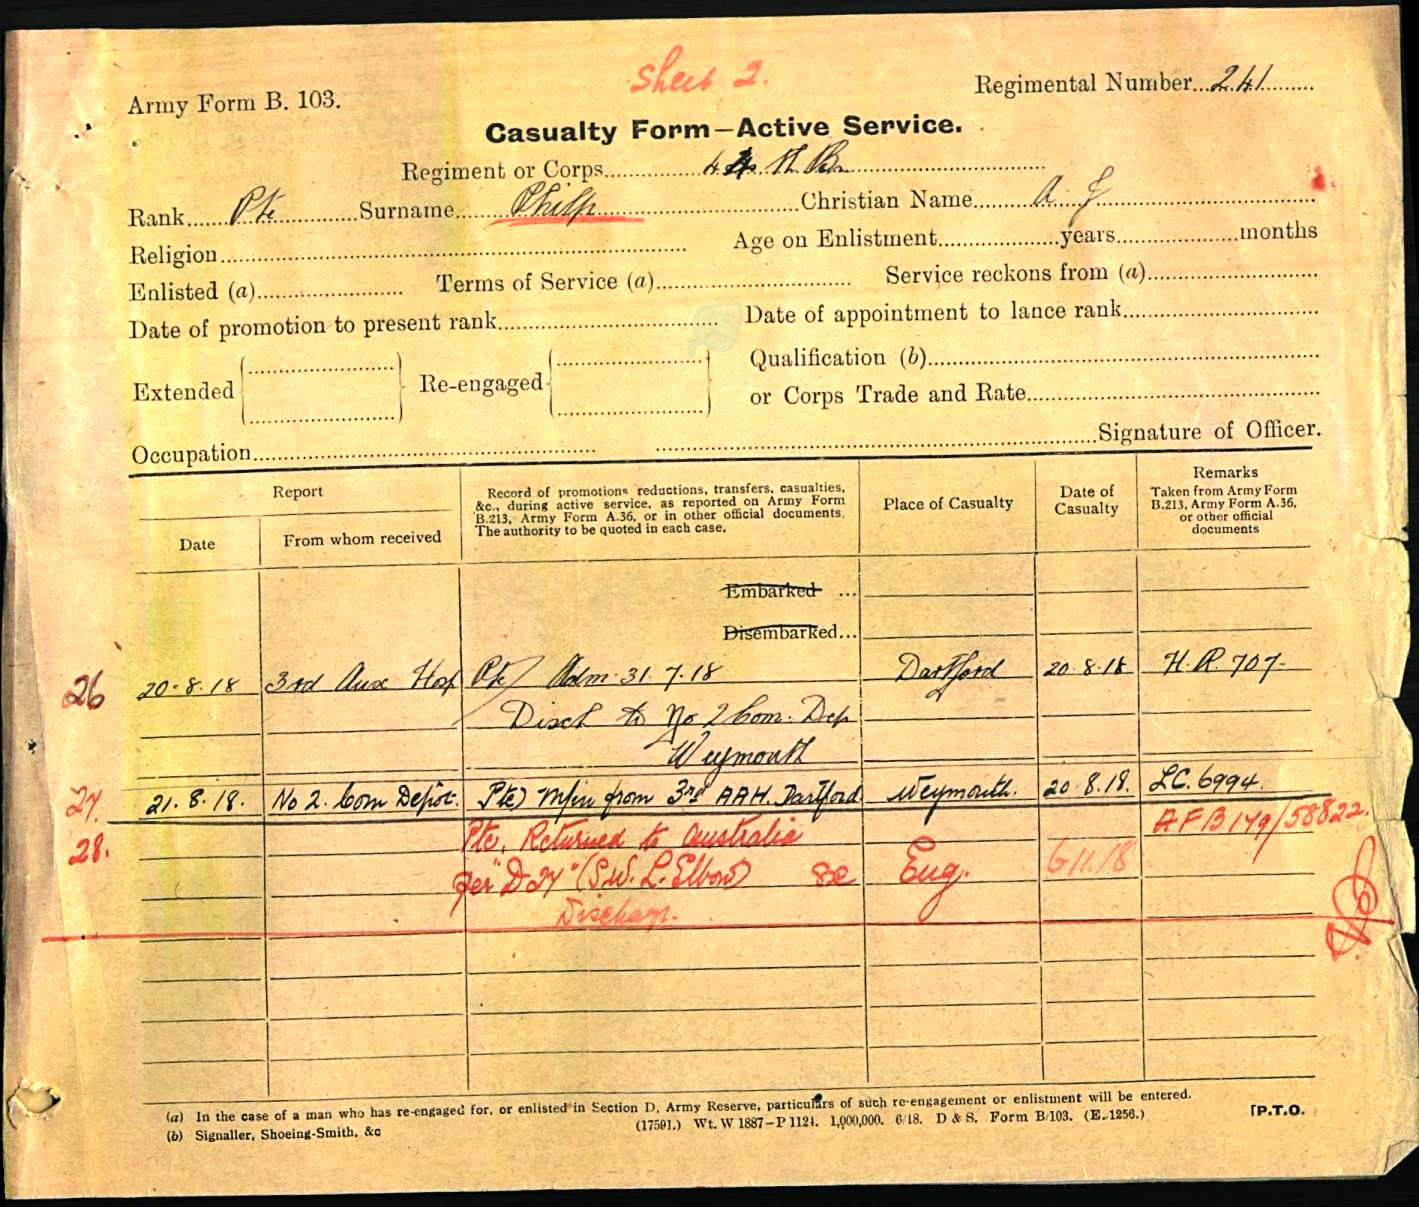 Sheet 2.
Army Form B. 103.
Regimental Number...241
Casualty Form—Active Service.
Regiment or Corps 44th Bn
Rank Pte Surname Philp Christian Name A. J
Religion Age on Enlistment years months
Enlisted (a) Terms of Service (a) Service reckons from (a)
Date of promotion to present rank Date of appointment to lance rank
Extended Re-engaged Qualification (b)
or Corps Trade and Rate
Occupation Signature of Officer.
Report
Date
From whom received
Record of promotions reductions, transfers, casualties,
&c., during active service, as reported on Army Form
B.213, Army Form A.36, or in other official documents.
The authority to be quoted in each case.
Place of Casualty
Date of
Casualty
Remarks
Taken from Army Form
B.213, Army Form A.36,
or other official
documents
Embarked ...
Disembarked...
26 20.8.18 3rd Aux Hosp Pte/ Adm 31.7.18 Dartford 20.8.18 H.R. 707
Disch to No 2 Com. Dep
Weymouth
27. 21.8.18. No 2. Com Depôt. Pte) M/in from 3rd AAH. Dartford Weymouth. 20.8.18. LC. 6994.
28. Pte, Returned to Australia AFB 179/58822.
per "D 27" (S.W. L. Elbow) Eng. 6.11.18
(a) In the case of a man who has re-engaged for, or enlisted in Section D, Army Reserve, particulars of such re-engagement or enlistment will be entered.
(b) Signaller, Shoeing-Smith, &c
(17591.) Wt. W 1887—P 1124. 1,000,000. 6/18. D & S. Form B/103. (E. 1256.)
[P.T.O.